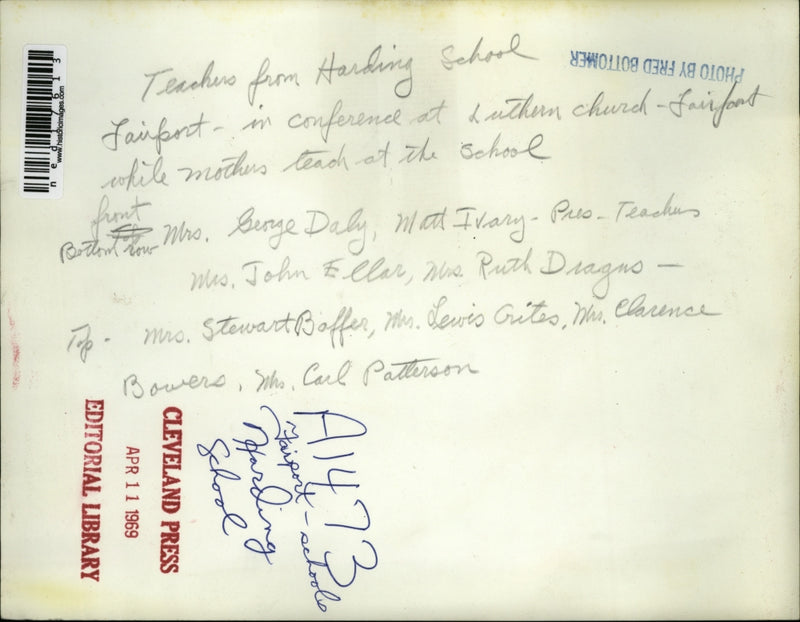 Teachers from Harding School
Fairport - in conference at Luthern church - Fairport
while mothers teach at the school
front
Bottom row Mrs. George Daly, Matt Ivary - Pres - Teachers
Mrs. John Ellar, Mrs. Ruth Dragus —
Top - Mrs. Stewart Baffer, Mrs. Lewis Crites, Mrs. Clarence
Bowers, Mrs. Carl Patterson
PHOTO BY FRED BOTTOMER
ned17613
www.historicimages.com
CLEVELAND PRESS
APR 11 1969
EDITORIAL LIBRARY
A1473
Fairport - schools
Harding
School